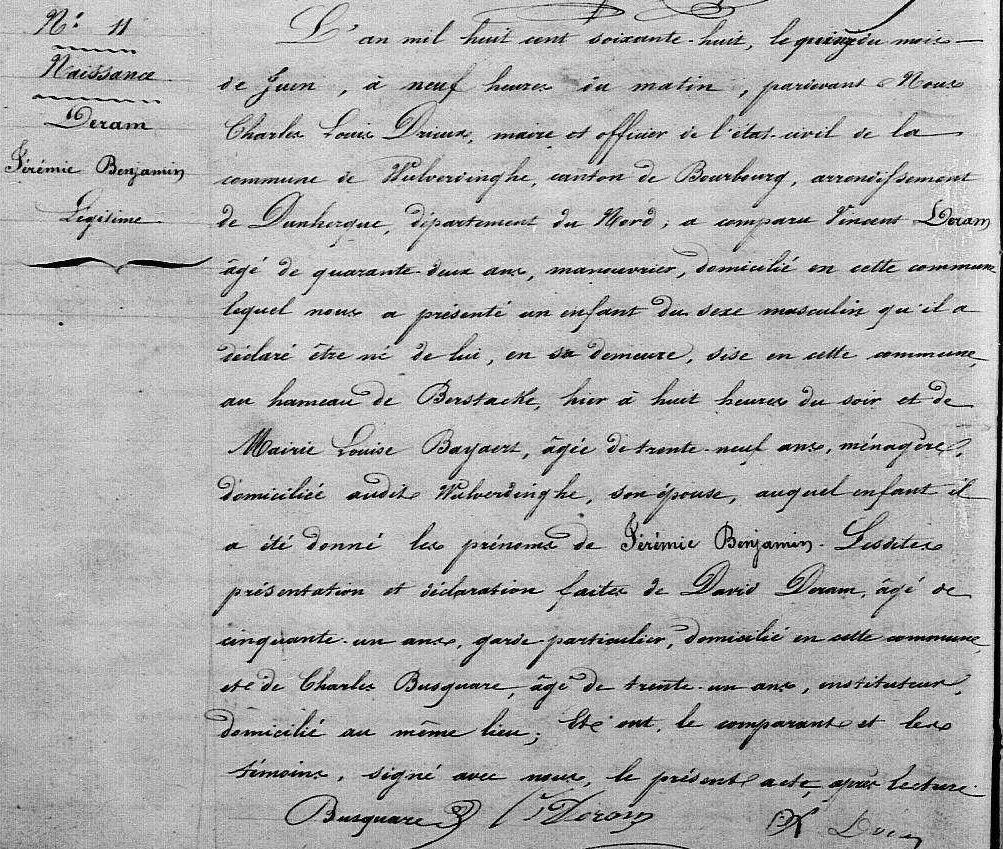 N.° 11
Naissance
Deram
Jérémie Benjamin
Légitime
L'an mil huit cent soixante-huit, le quinze du mois
de Juin, à neuf heures du matin, pardevant Nous
Charles Louis Drieux, maire et officier de l'état-civil de la
commune de Wulverdinghe, canton de Bourbourg, arrondissement
de Dunkerque, département du Nord, a comparu Vincent Deram
âgé de quarante-deux ans, manouvrier, domicilié en cette commune
lequel nous a présenté un enfant du sexe masculin qu'il a
déclaré être né de lui, en sa demeure, sise en cette commune,
au hameau de Berstacke, hier à huit heures du soir et de
Mairie Louise Bayaert, âgée de trente-neuf ans, ménagère,
domiciliée audit Wulverdinghe, son épouse, auquel enfant il
a été donné les prénoms de Jérémie Benjamin. Lesdites
présentation et déclaration faites de David Deram, âgé de
cinquante-un ans, garde-particulier, domicilié en cette commune,
et de Charles Busquare, âgé de trente-un ans, instituteur,
domicilié au même lieu; Et ont, le comparant et les
témoins, signé avec nous, le présent acte, après lecture.
Busquare Deram